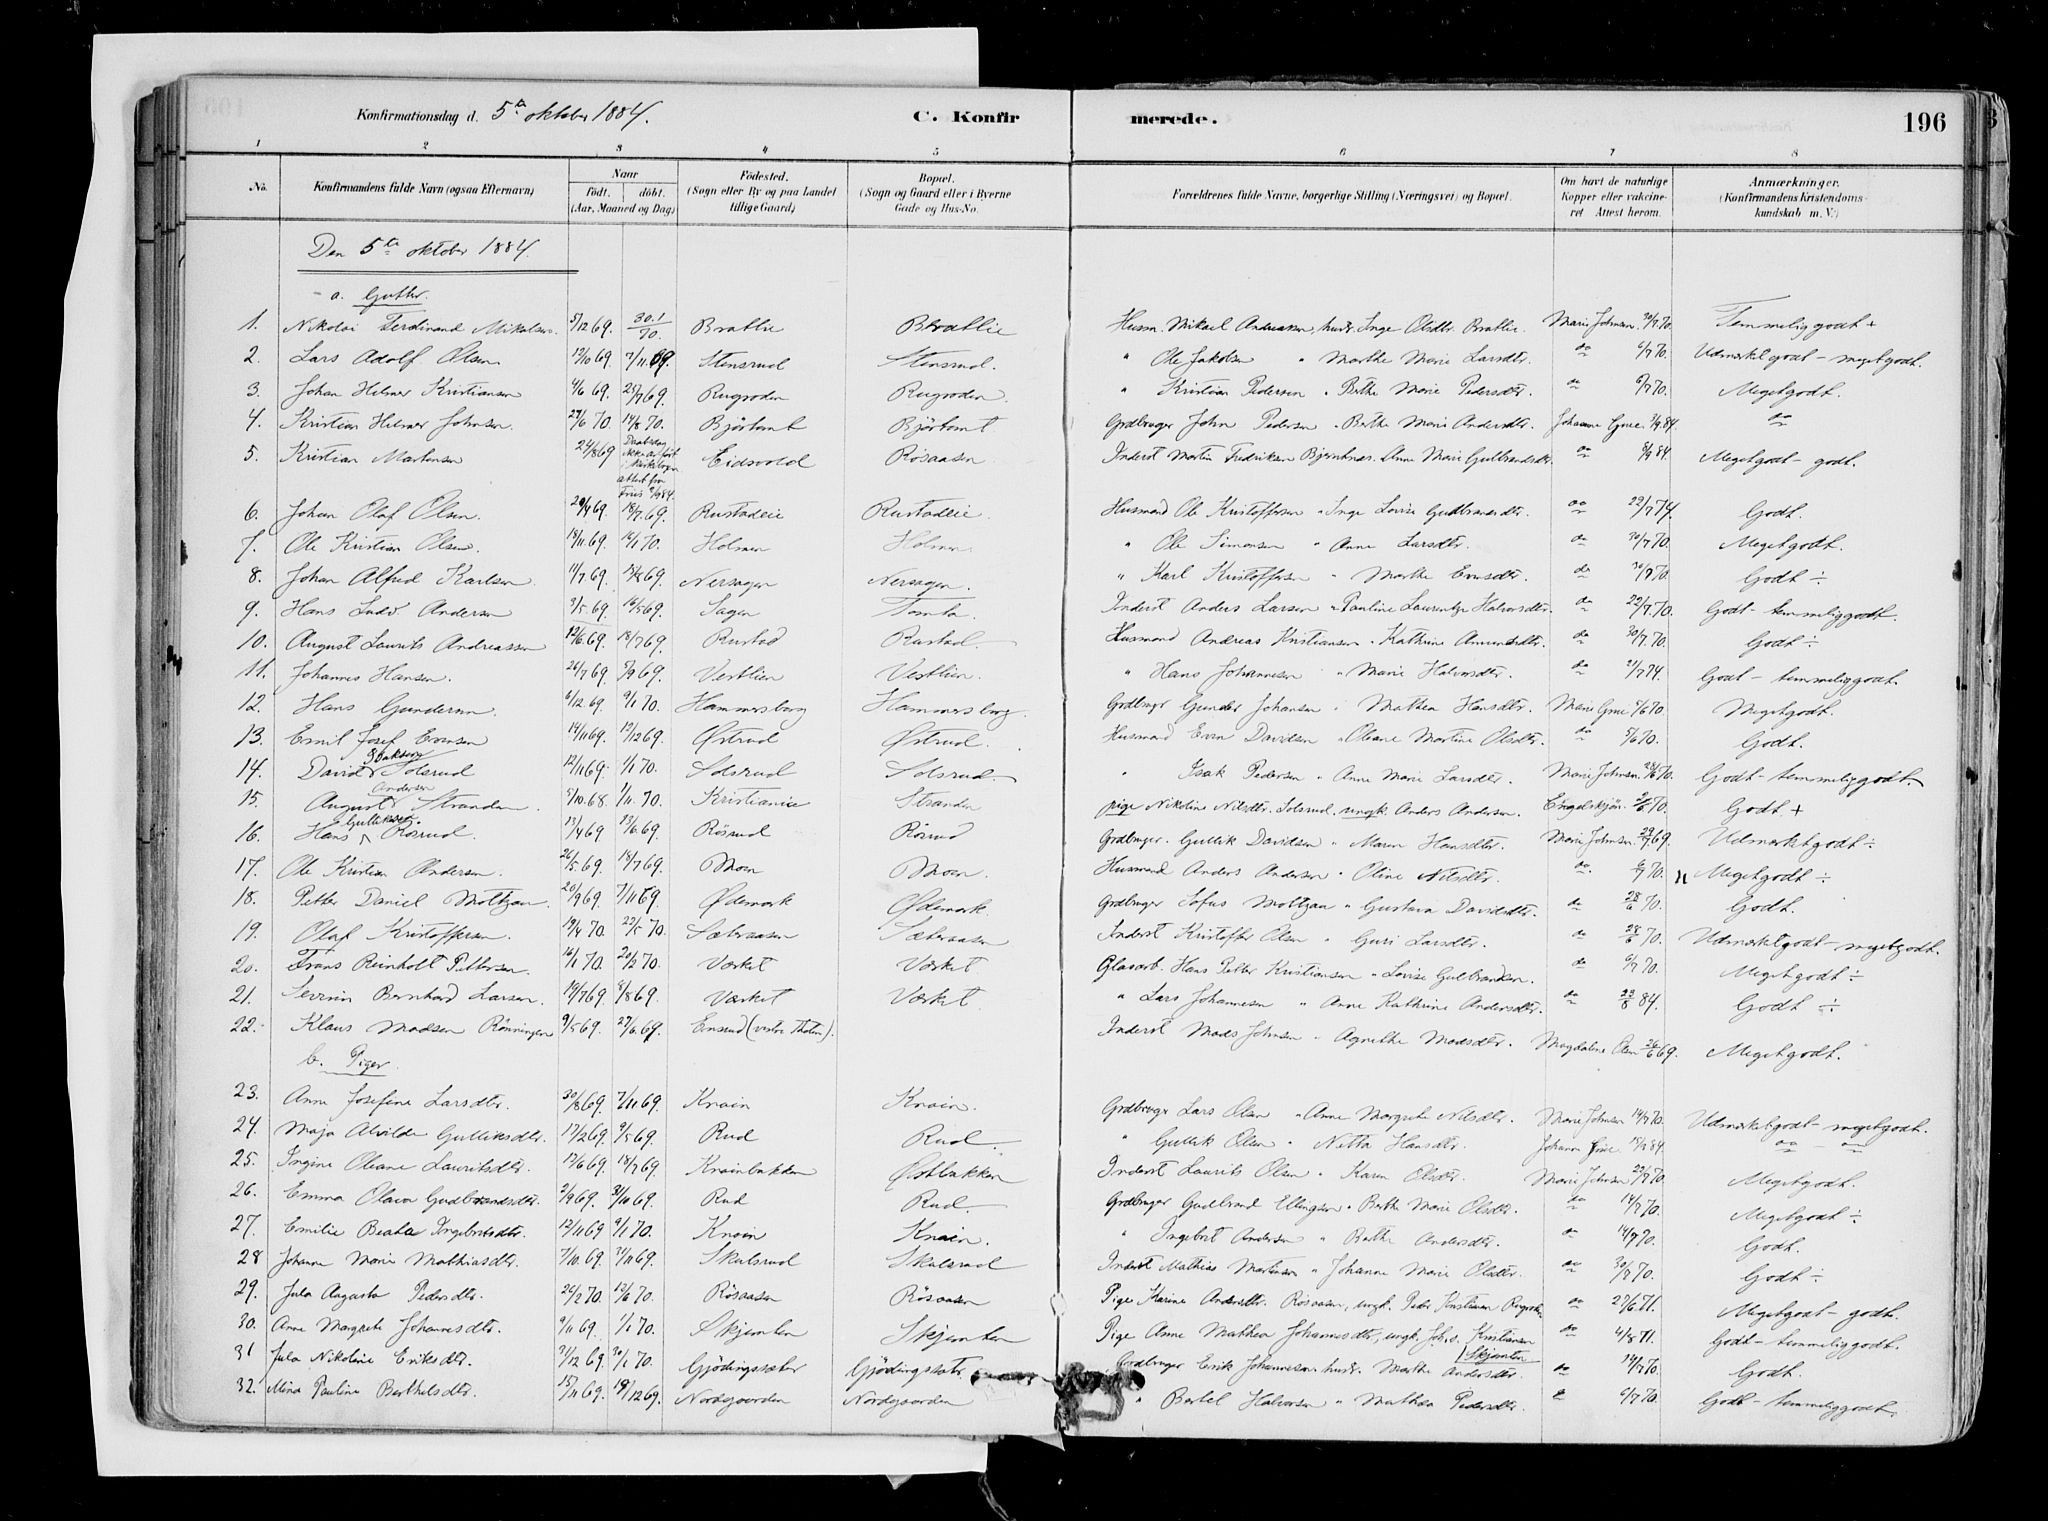 Konfirmationsdag d. 5te oktober 1884. C. Konfirmerede. 196
1 2 3 4 5 6 7 8
No. Konfirmandens fulde Navn (ogsaa Efternavn) Naar født. døbt. (Aar, Maaned og Dag) Fødested. (Sogn eller By og paa Landet tillige Gaard) Bopæl. (Sogn og Gaard eller i Byerne Gade og Hus-No. Forældrenes fulde Navne, borgerlige Stilling (Næringsvei) og Bopæl. Om havt de naturlige Kopper eller vakcineret Attest herom. Anmærkninger. (Konfirmandens Kristendomskundskab m. V.)
Den 5te oktober 1884.
a. Gutter.
1. Nikolai Ferdinand Mikalsen. 5/12 69. 30.1/70. Bratlie Bratlie Husm. Mikael Andreassen, hustr. Inge Olsdtr. Bratlie. Marie Johnsen 30/7 70. Temmelig godt +
2. Lars Adolf Olsen 17/10 69. 7/11 69. Stensrud Stensrud. " Ole Jakobsen " Marthe Marie Larsdtr. do 6/7 70. Udmærket godt - meget godt.
3. Johan Helmer Kristiansen 4/6 69. 25/7 69. Rugroden Rugroden. " Kristian Pedersen " Berthe Marie Pedersdtr. do 6/7 70. Meget godt.
4. Kristian Helmer Johnsen. 27/6 70. 14/8 70. Björtomt Björtomt Grdbruger John Pedersen " Berthe Marie Andersdtr. Johanne Gjue. 3/9 84. do
5. Kristian Martensen 24/8 69 Daabsdag ikke anført i kirkebogen attest fra Friis 9/9 84. Eidsvold Rösaasen Inderst Martin Fredriksen Bjerntnæs. Anne Marie Gulbrandsdtr. do 8/9 84. Meget godt - godt.
6. Johan Olaf Olsen. 29/4 69. 18/7 69. Rustadeie Rustadeie. Husmand Ole Kristoffersen " Inge Lovise Gudbrandsdtr. do 22/7 74. Godt.
7. Ole Kristian Olsen. 18/11 69. 16/1 70. Holmen Holmen. " Ole Simensen " Anne Larsdtr. do 30/7 70. Meget godt.
8. Johan Alfred Karlsen 11/7 69. 15/8 69. Nersagen Nersagen. " Karl Kristoffersen " Marthe Evensdtr. do 30/7 70. Godt ÷
9. Hans Ludv. Andersen 3/5 69. 16/5 69. Sagen Tomta Inderst Anders Larsen " Pauline Laurentze Halvorsdtr. do 22/7 70. Godt - temmelig godt.
10. August Laurits Andreassen 12/6 69. 18/7 69. Rustad Rustad. Husmand Andreas Kristiansen " Kathrine Amundsdtr. do 30/7 70. Godt ÷
11. Johannes Hansen. 26/7 69. 5/9 69. Vestlien Vestlien. " Hans Johannesen " Marie Halvorsdtr. do 21/7 74. Godt - temmelig godt.
12. Hans Gundersen. 6/12 69. 9/1 70. Hammersborg Hammersborg. Grdbruger Gunder Johansen " Mathea Hansdtr. Marie Gjue 5/6 70. Meget godt.
13. Emil Josef Evensen 14/11 69. 12/12 69. Østrud Østrud. Husmand Even Davidsen " Oleane Martine Olsdtr. do 5/6 70. Godt.
14. David Isaksen Solsrud 12/11 69. 1/1 70. Solsrud Solsrud. " Isak Pedersen " Anne Marie Larsdtr. Marie Johnsen. 28/6 70. Godt - temmelig godt.
15. August Andersen Stranden. 5/10 68. 1/11 70. Kristiania Stranden pige Nikoline Nilsdtr. Solsrud, ungk. Anders Andersen. Engelskjön. 2/6 70. Godt +
16. Hans Gulliksen Rösrud. 13/4 69 13/6 69. Rösrud Rösrud Grdbruger. Gullik Davidsen " Maren Hansdtr. Marie Johnsen. 29/7 69. Udmærket godt ÷
17. Ole Kristian Andersen. 26/5 69. 18/7 69. Moen Moen. Husmand Anders Andersen " Oline Nilsdtr. do. 6/7 70. Meget godt ÷
18. Petter Daniel Moltzau. 20/9 69. 7/11 69. Ødemark Ødemark. Grdbruger Sofus Moltzau " Gustava Davidsdtr. do 28/6 70. Godt.
19. Olaf Kristoffersen. 19/4 70. 22/5 70. Sætersaasen Sætersaasen Inderst Kristoffer Olsen " Guri Larsdtr. do 28/6 70. Udmærket godt - meget godt.
20. Frans Reinholt Pettersen. 16/1 70. 20/2 70. Værket Værket Glasarb. Hans Petter Kristiansen " Lovise Gulbrandsen. do 6/7 70. Meget godt ÷
21. Severin Bernhard Larsen. 19/7 69. 8/8 69. Værket Værket. " Lars Johannesen " Anne Kathrine Andersdtr. do 23/8 84. Godt ÷
22. Klaus Madsen Rönningen 9/5 69. 27/6 69. Ensrud (vestre Tholen). Inderst Mads Johnsen " Agnethe Madsdtr. Magdalene Olsen 26/6 69. Meget godt.
b. Piger.
23. Anne Josefine Larsdtr. 30/8 69. 7/11 69. Knain Knain. Grdbruger Lars Olsen " Anne Margrete Nilsdtr. Marie Johnsen 14/7 70. Udmærket godt - meget godt.
24. Maja Alvilde Gulliksdtr. 17/2 69. 9/5 69. Rud Rud. " Gullik Olsen " Netta Hansdtr. Johanne Gjue. 15/9 84. do - do
25. Ingine Oleane Lauritsdtr. 12/6 69. 18/7 69. Knainbakken Østbakken Inderst Laurits Olsen " Karen Olsdtr. Marie Johnsen 22/7 70. Meget godt.
26. Emma Olava Gudbrandsdtr. 2/9 69. 31/10 69. Rud Rud. Grdbruger Gudbrand Ellingsen " Berthe Marie Olsdtr. do 14/7 70. Meget godt ÷
27. Emilie Beathe Ingebretsdtr. 12/11 69 9/1 70. Knain Knain. " Ingebret Andersen " Berthe Andersdtr. do 14/7 70. Godt.
28 Johanne Marie Mathiasdtr. 7/10 69. 21/11 69. Skulsrud Skulsrud Inderst Mathias Martinsen " Johanne Marie Olsdtr. do 30/7 70. Godt ÷
29. Jula Augusta Pedersdtr. 26/2 70. 12/6 70. Rösaasen Rösaasen Pige Karine Andersdtr. Rösaasen, ungk. Peder Kristiansen Rugroden do 27/6 71. Meget godt - godt.
30. Anne Margrete Johannesdtr. 9/11 69. 1/1 70. Skjemten Skjemten Pige Anne Mathea Johannesdtr, ungk. Johs. Kristiansen Skjemten do 4/8 71. Godt - temmelig godt.
31 Jula Nikoline Eriksdtr. 31/12 69. 30/1 70. Gjödingssæter Gjödingssæter. Grdbruger Erik Johannesen. hustr. Marthe Andersdtr. do 14/7 70. Godt.
32. Mina Pauline Berthelsdtr. 15/11 69. 19/12 69. Nordgaarden Nordgaarden " Bertel Halvorsen " Mathea Pedersdtr. do 6/7 70. Godt - temmelig godt.